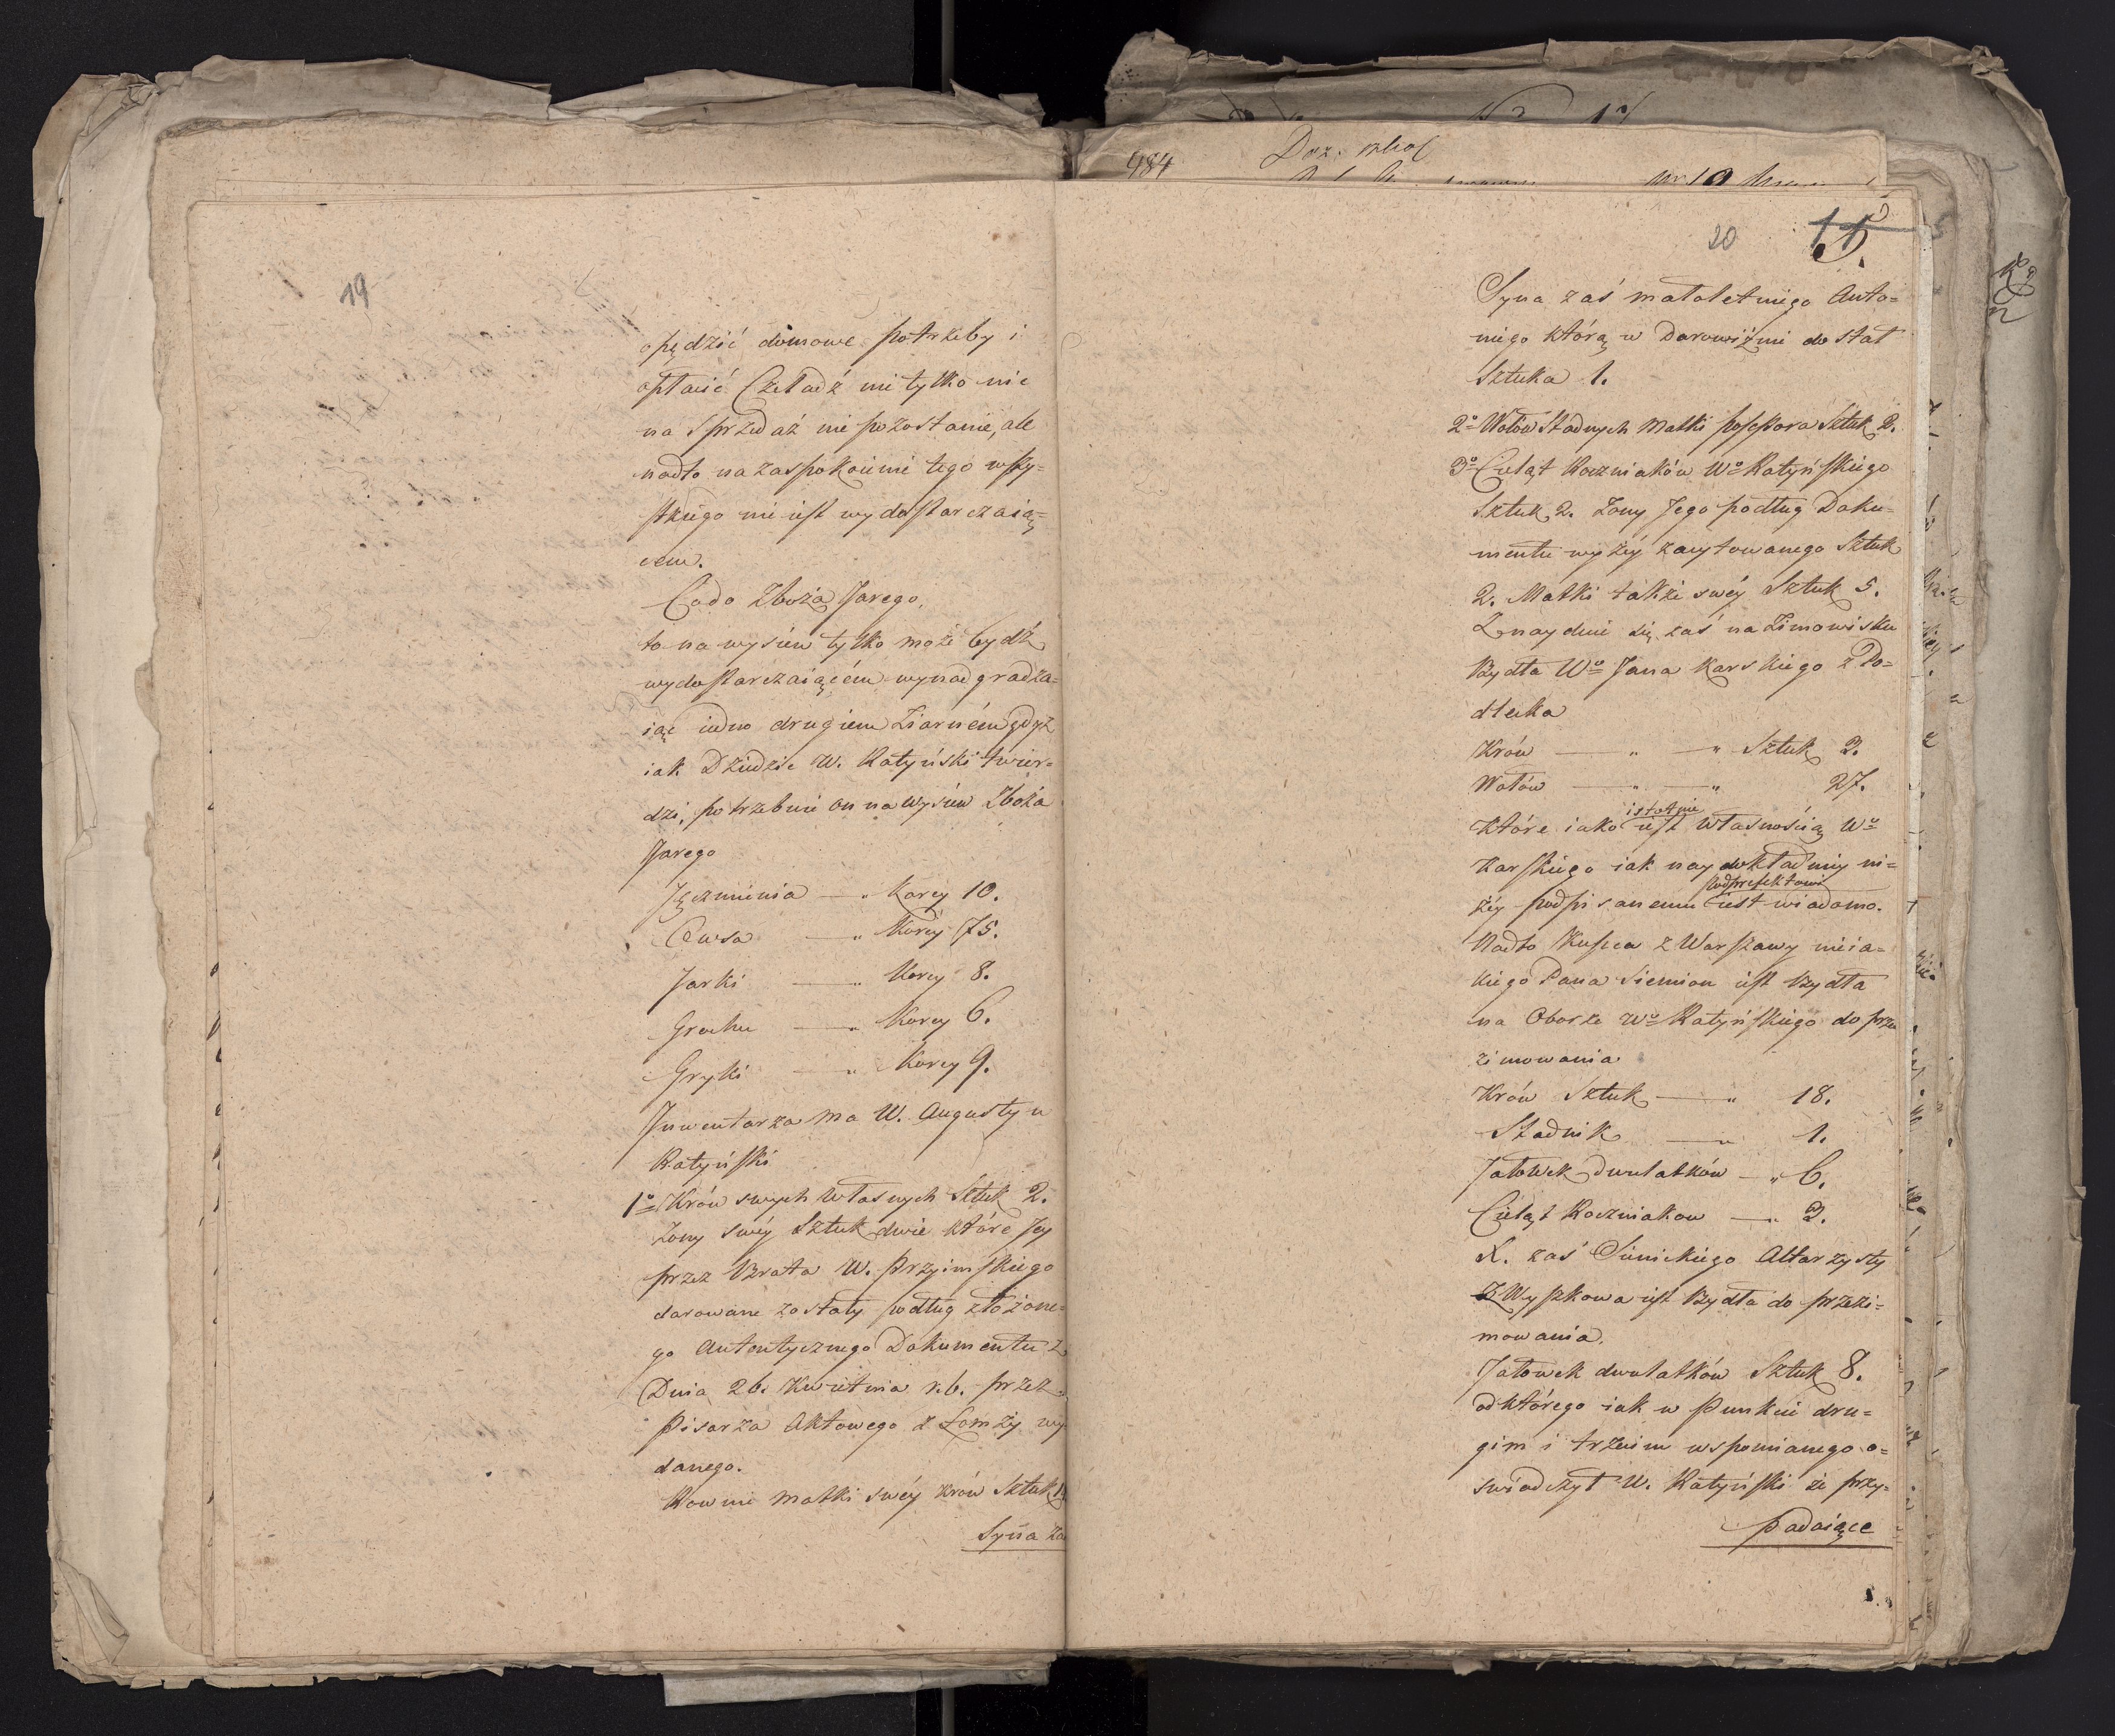 19
opędzić domowe potrzeby i
opłacić Czeladź nie tylko nic
na Sprzedaż nie pozostanie, ale
nadto na zaspokoienie tego wszy=
stkiego nie iest wydostarczaią=
cem.
Co do Zboża Jarego,
to na wysiew tylko może bydź
wydostarczaiącém wynadgradza=
iąc iedno drugiem Ziarnem gdyż
iak Dziedzic W. Ratyński twier=
dzi, potrzebuie on na wysiew Zboża
Jarego
Jęczmienia — " Korcy 10.
Owsa — " Korcy 75.
Jarki — " Korcy 8.
Grochu — " Korcy 6.
Gryki — " Korcy 9.
Inwentarza ma W. Augustyn
Ratyński
1º Krów swych własnych Sztuk 2.
Żony swéy Sztuk dwie które Jey
przez Brata W. Przyimskiego
darowane zostały podług złożone=
go Autentycznego Dokumentu z
Dnia 26. Kwietnia r.b. przez
Pisarza Aktowego z Łomży wy
danego.
Rownie Matki swéy Krów Sztuk
Syna za
984
20 11
Syna zaś małoletniego Anto=
niego którą w Darowiźnie dostał
Sztuka 1.
2º Wołów Stadnych Matki Possessora Sztuk 2.
3º Cieląt Roczniaków Wº Ratyńskiego
Sztuk 2. Żony Jego podług Doku=
mentu wyżéy zacytowanego Sztuk
2. Matki także swéy Sztuk 5.
Znayduie się zaś na Zimowisku
Bydła Wº Jana Karskiego z Po=
dlecka
Krów — " — " Sztuk 3.
Wołów — " — " 27.
istotnie
Które iako iest Własnością Wº
Karskiego iak naydokładniéy ni=
Podprefektowi
żéy podpisanemu iest wiadomo.
Nadto Kupca z Warszawy nieia=
kiego Pana Siemion iest Bydła
na Oborze Wº Ratyńskiego do prze
zimowania
Krów Sztuk — " 18.
Stadnik — " 1.
Jałowek dwulatków — " 6.
Cieląt Roczniakow — " 3.
X. zaś Sienickiego Altarzysty
z Wyszkowa iest Bydła do przezi=
mowania.
Jałowek dwulatków Sztuk 8.
od którego iak w Punkcie dru=
gim i trzecim wspomianego o=
świadczył W. Ratyński że przy=
padaiące